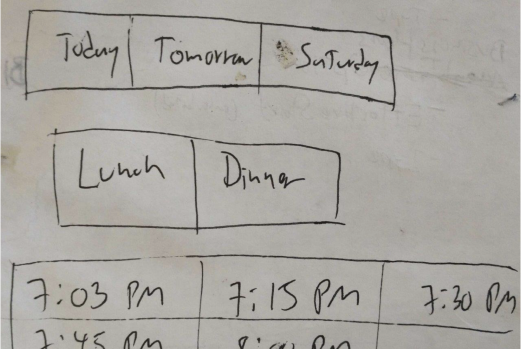 Today Tomorrow Saturday
Lunch Dinner
7:03 PM 7:15 PM 7:30 PM
7:45 PM 8:00 PM